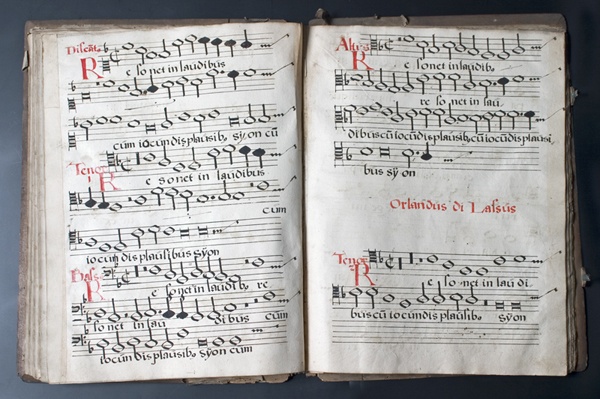 Discāt,
R
e so net in laudibus
cum iocun dis plausib, sy on cū
Tenor
R
e sonet in laudibus
cum
iocun dis plausibus syon
Bass,
R
e sonet in laudib, re
so net in lau di bus cum
iocun dis plausib, syon cum
Altus
R
e sonet in laudib,
re so net in lau
di bus cū iocūdis plausib, cū iocūdis plausi
bus sy on
Orlandus di Lassus
Tenor
R
e so net in lau di
bus cū iocundis plausib, syon